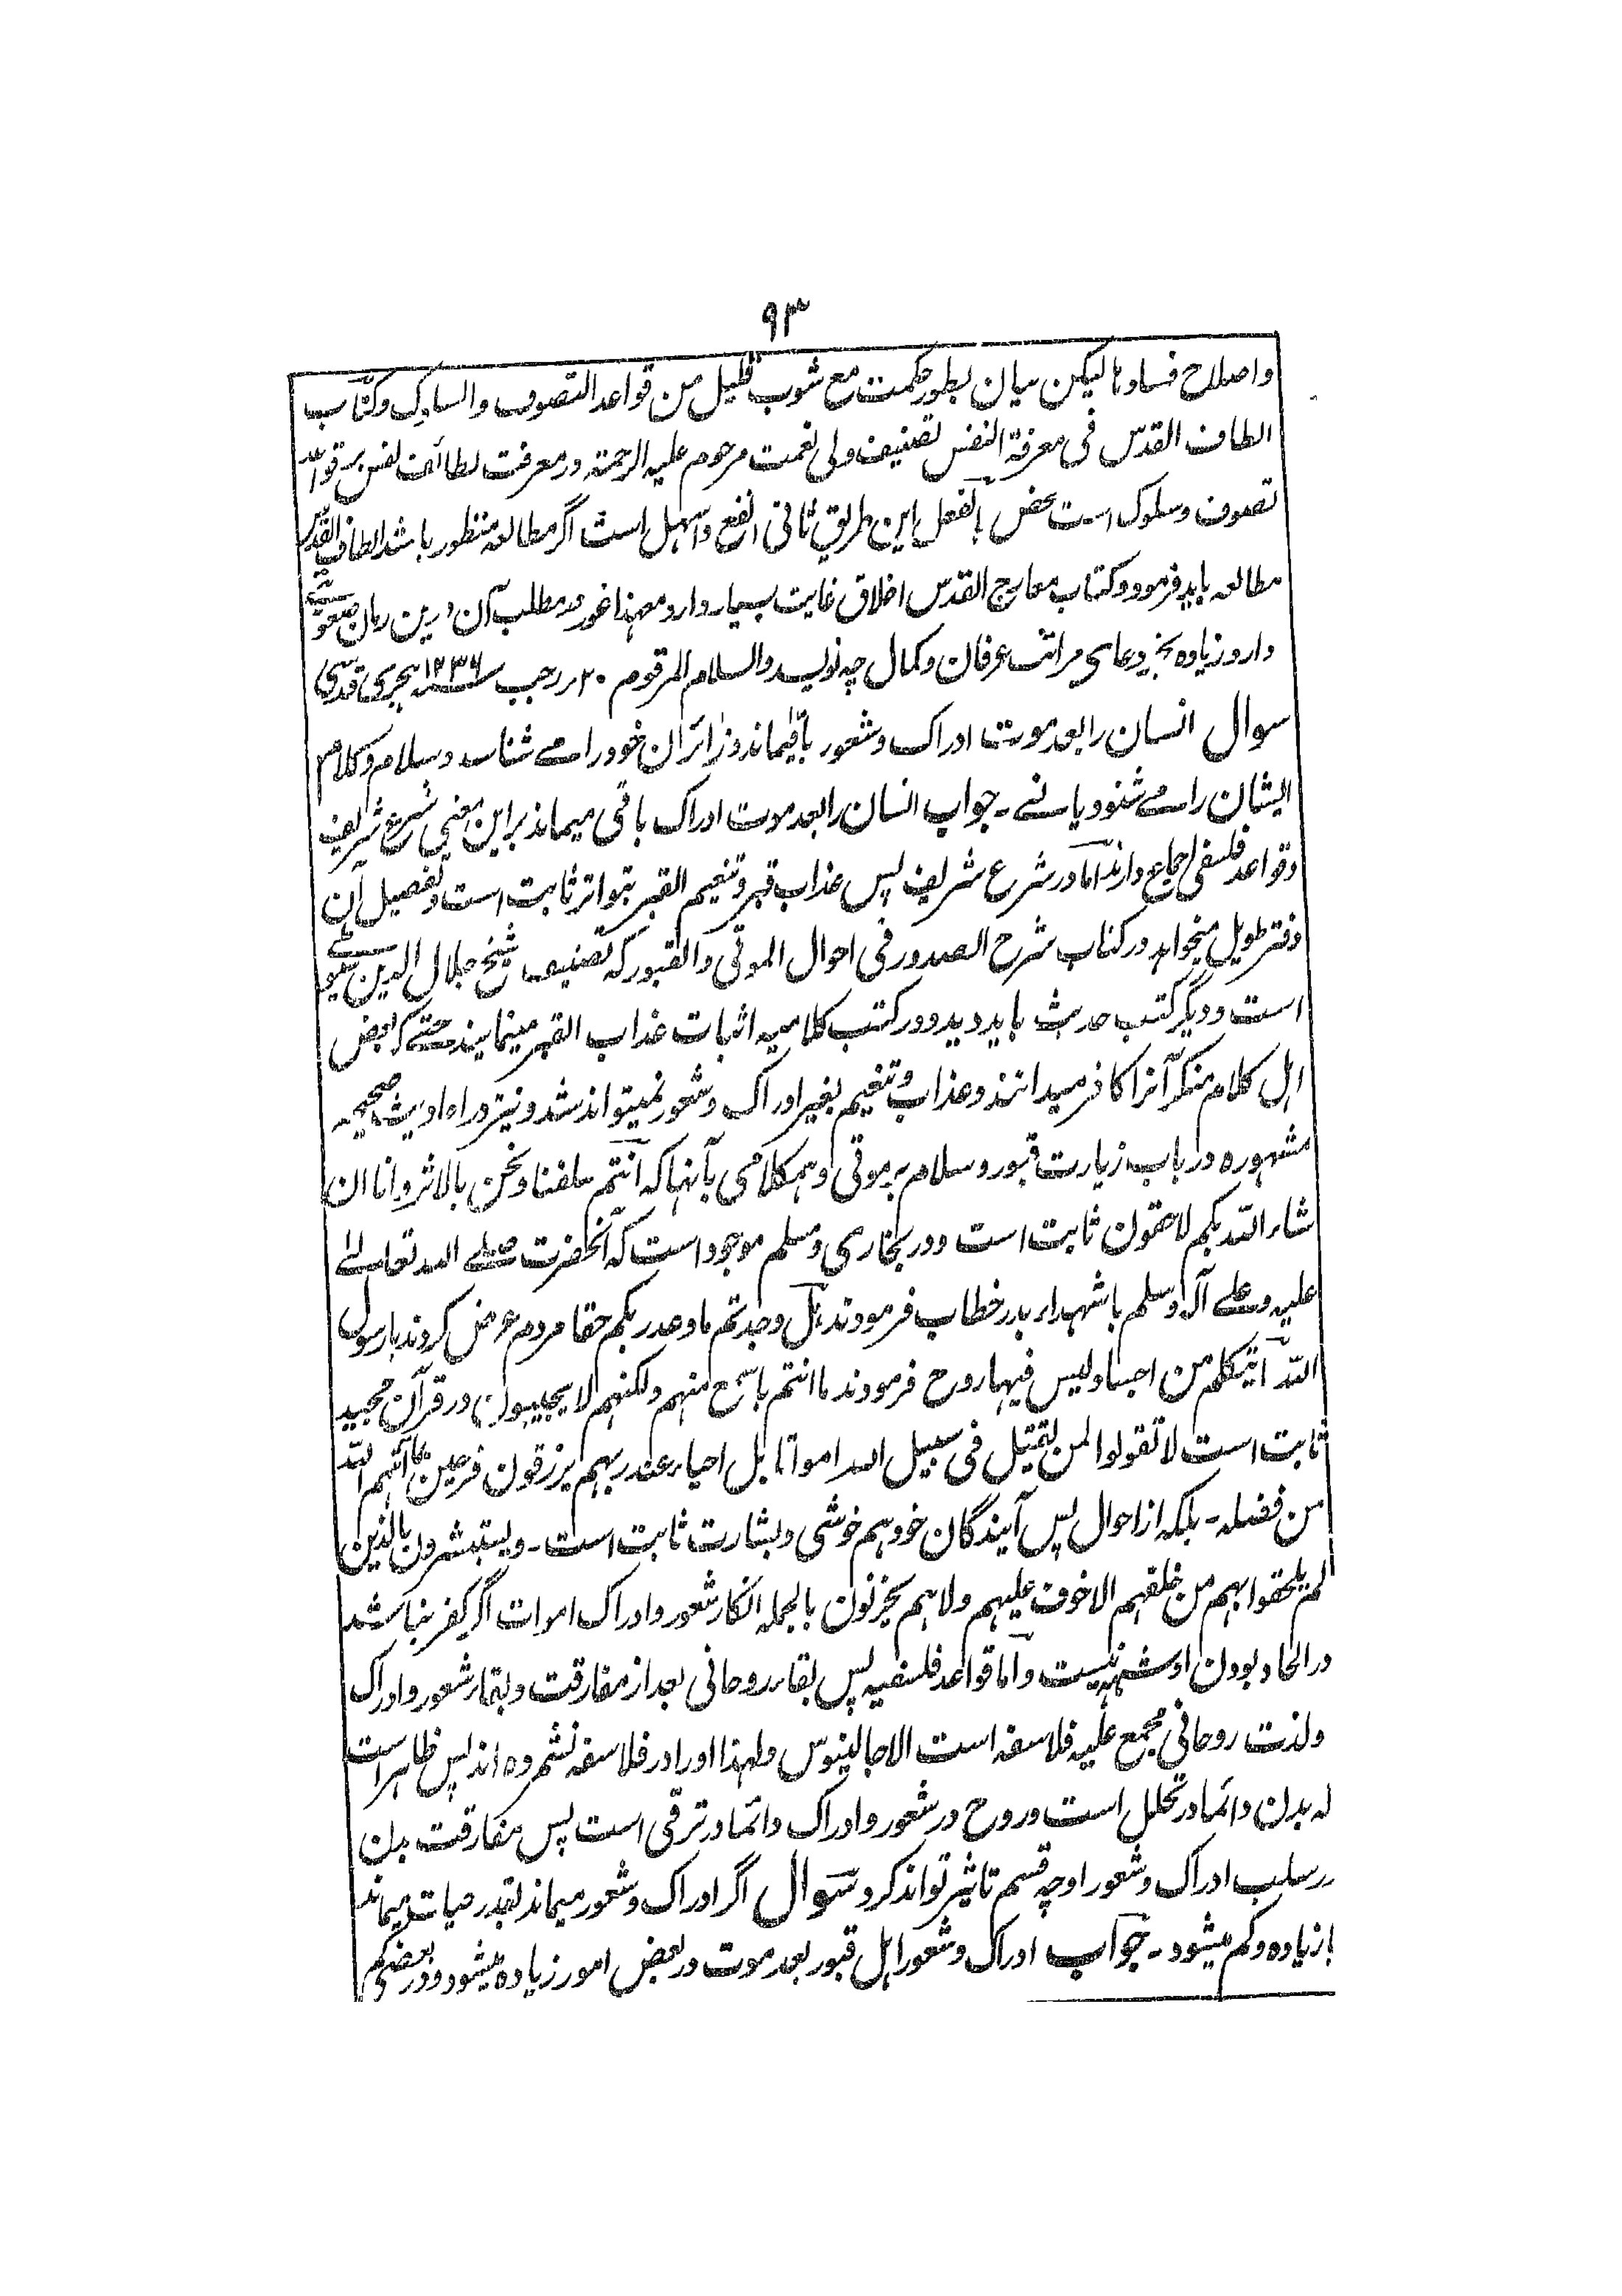 ۹۳
واصلاح فساد ما لیکن بیان بطور حکمت مع شوب قلیل من قواعد التصوف والسلوک وکتاب
الطاف القدس فی معرفة النفس تصنیف ولی نعمت مرحوم علیه الرحمة در معرفت لطائف نفس بر قواعد
تصوف وسلوک است محض بالفعل این طریق ثانی انفع واسهل است اگر مطالعه منظور باشد الطاف القدس
مطالعه باید فرمود وکتاب معارج القدس اغلاق غایت بسیار دارد ومعهذا غور در مطلب آن درین زمان صعوبتے
دارد زیاده بجز دعای مراتب عرفان وکمال چه نویسد والسلام المرقوم ۲۰ رجب سنه ۱۲۳۶ هجری قدسی
سوال انسان را بعد موت ادراک وشعور باقیماند وزائران خود را مے شناسد وسلام وکلام
ایشان را مے شنود یا نے۔ جواب انسان را بعد موت ادراک باقی میماند براین معنی شرع شریف
وقواعد فلسفی اجماع دارند اما در شرع شریف پس عذاب قبر وتنعیم القبر بتواتر ثابت است وتفصیل آن
دفتر طویل میخواهد در کتاب شرح الصدور فی احوال الموتی والقبور که تصنیف شیخ جلال الدین سیوطے
است ودیگر کتب حدیث باید دید ودر کتب کلامیه اثبات عذاب القبر مینمایند حتے که بعض
اهل کلام منکر آنرا کافر میدانند وعذاب وتنعیم بغیر ادراک وشعور نمیتواند شد ونیز در احادیث صحیحه
مشهوره در باب زیارت قبور وسلام بر موتی وهمکلامی بآنها که انتم سلفنا ونحن بالاثر وانا ان
شاء الله بکم لاحقون ثابت است ودر بخاری ومسلم موجود است که آنحضرت صلے الله تعالےٰ
علیه وعلے آله وسلم با شهداء بدر خطاب فرمودند هل وجدتم ما وعد ربکم حقا مردم عرض کردند یا رسول
الله اتتکلم من اجساد لیس فیها روح فرمودند ما انتم باسمع منهم ولکنهم لا یجیبون ودر قرآن مجید
ثابت است لا تقولوا لمن یقتل فی سبیل الله امواتا بل احیاء عند ربهم یرزقون فرحین بما آتهم الله
من فضله۔ بلکه از احوال پس آیندگان خود هم خوشی وبشارت ثابت است۔ ویستبشرون بالذین
لم یلحقوا بهم من خلفهم الا خوف علیهم ولا هم یحزنون بالجمله انکار شعور وادراک اموات اگر کفر نباشد
در الحاد بودن او شبهه نیست واما قواعد فلسفیه پس بقاء روحانی بعد از مفارقت وبقاء شعور وادراک
ولذت روحانی مجمع علیه فلاسفه است الا جالینوس ولهذا او را در فلاسفه نشمرده اند پس ظاهر است
له بدن دائما در تحلل است وروح در شعور وادراک دائما در ترقی است پس مفارقت بدن
ر سلب ادراک وشعور او چه قسم تاثیر تواند کرد سوال اگر ادراک وشعور میماند بقدر حیات میماند
یا زیاده وکم میشود۔ جواب ادراک وشعور اهل قبور بعد موت در بعض امور زیاده میشود ودر بعضی کم